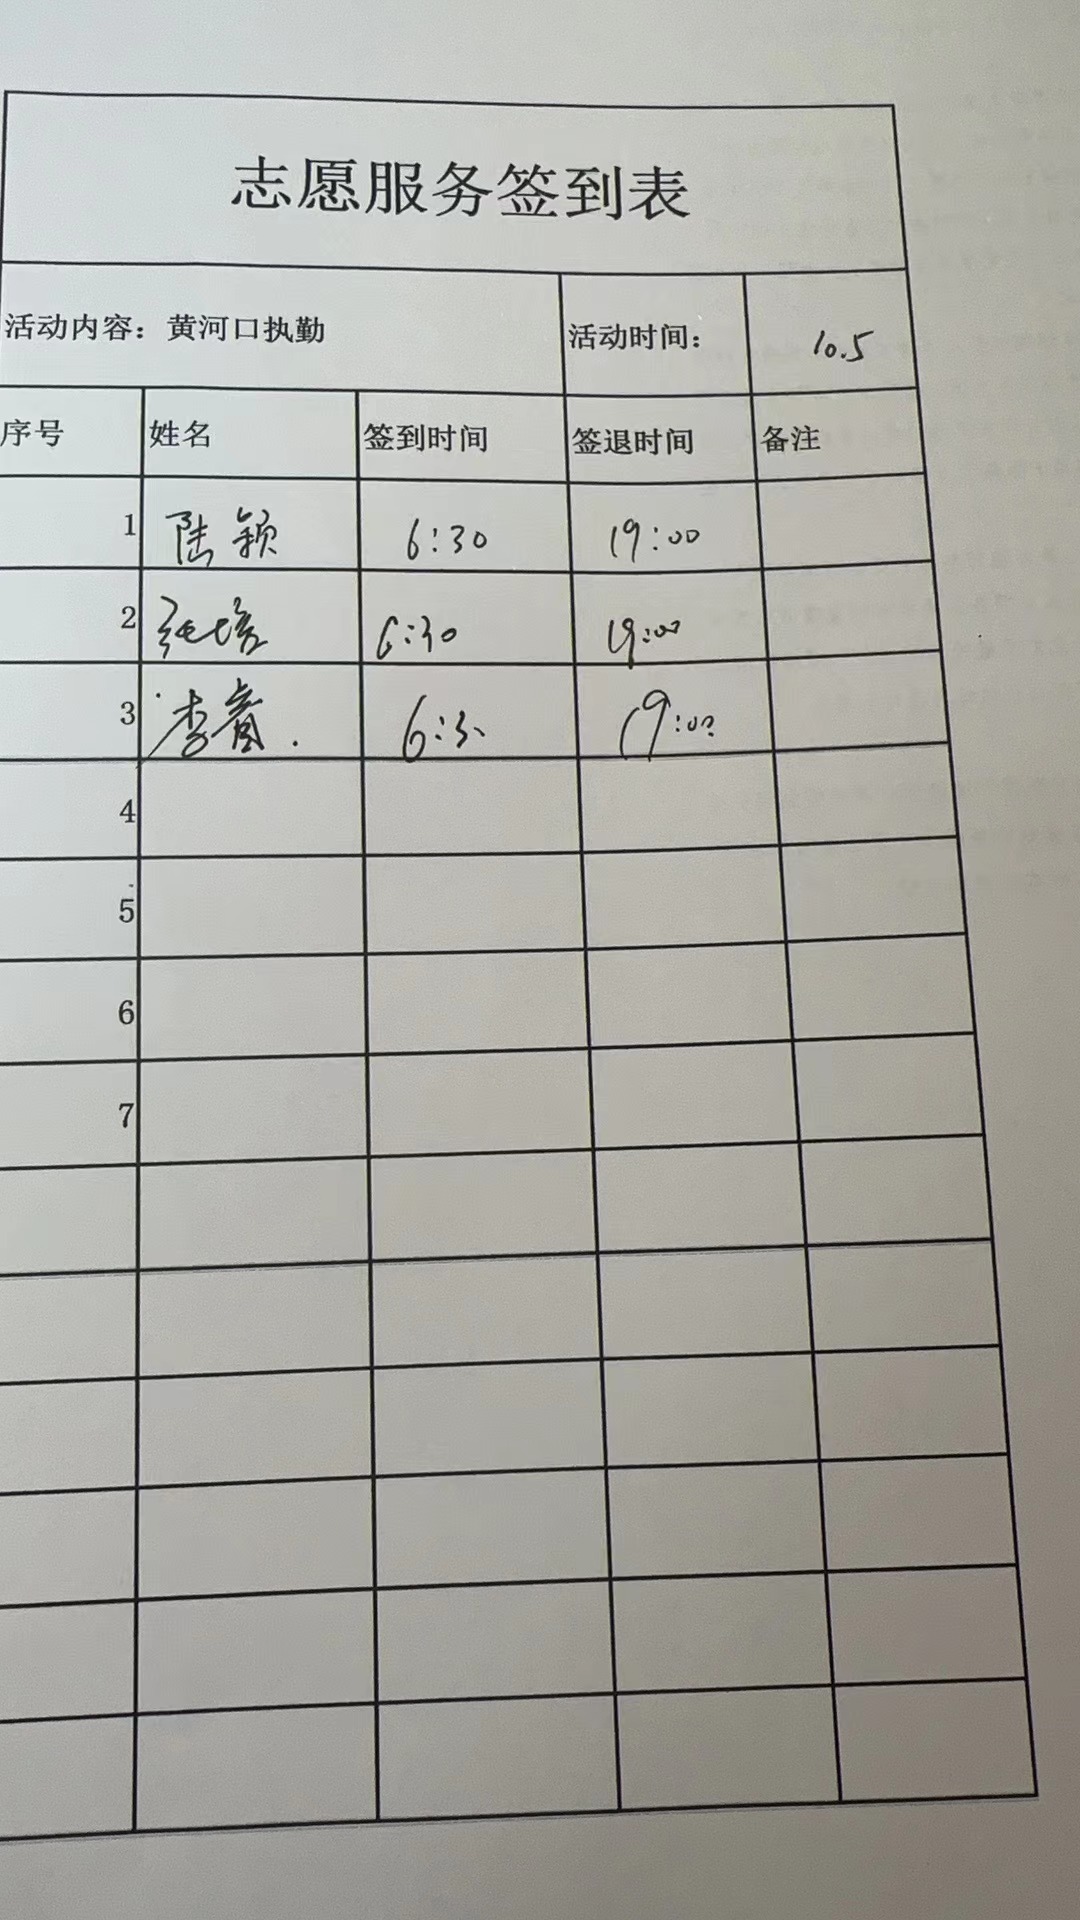 志愿服务签到表
活动内容：黄河口执勤 活动时间： 10.5
序号 姓名 签到时间 签退时间 备注
1 陆颖 6:30 19:00
2 张 6:30 19:00
3 李 6:30 19:00
4
5
6
7